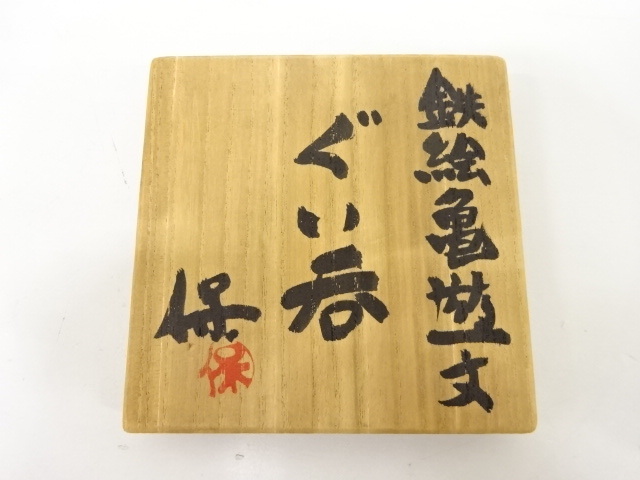 鉄絵亀遊文
ぐい呑
保
保